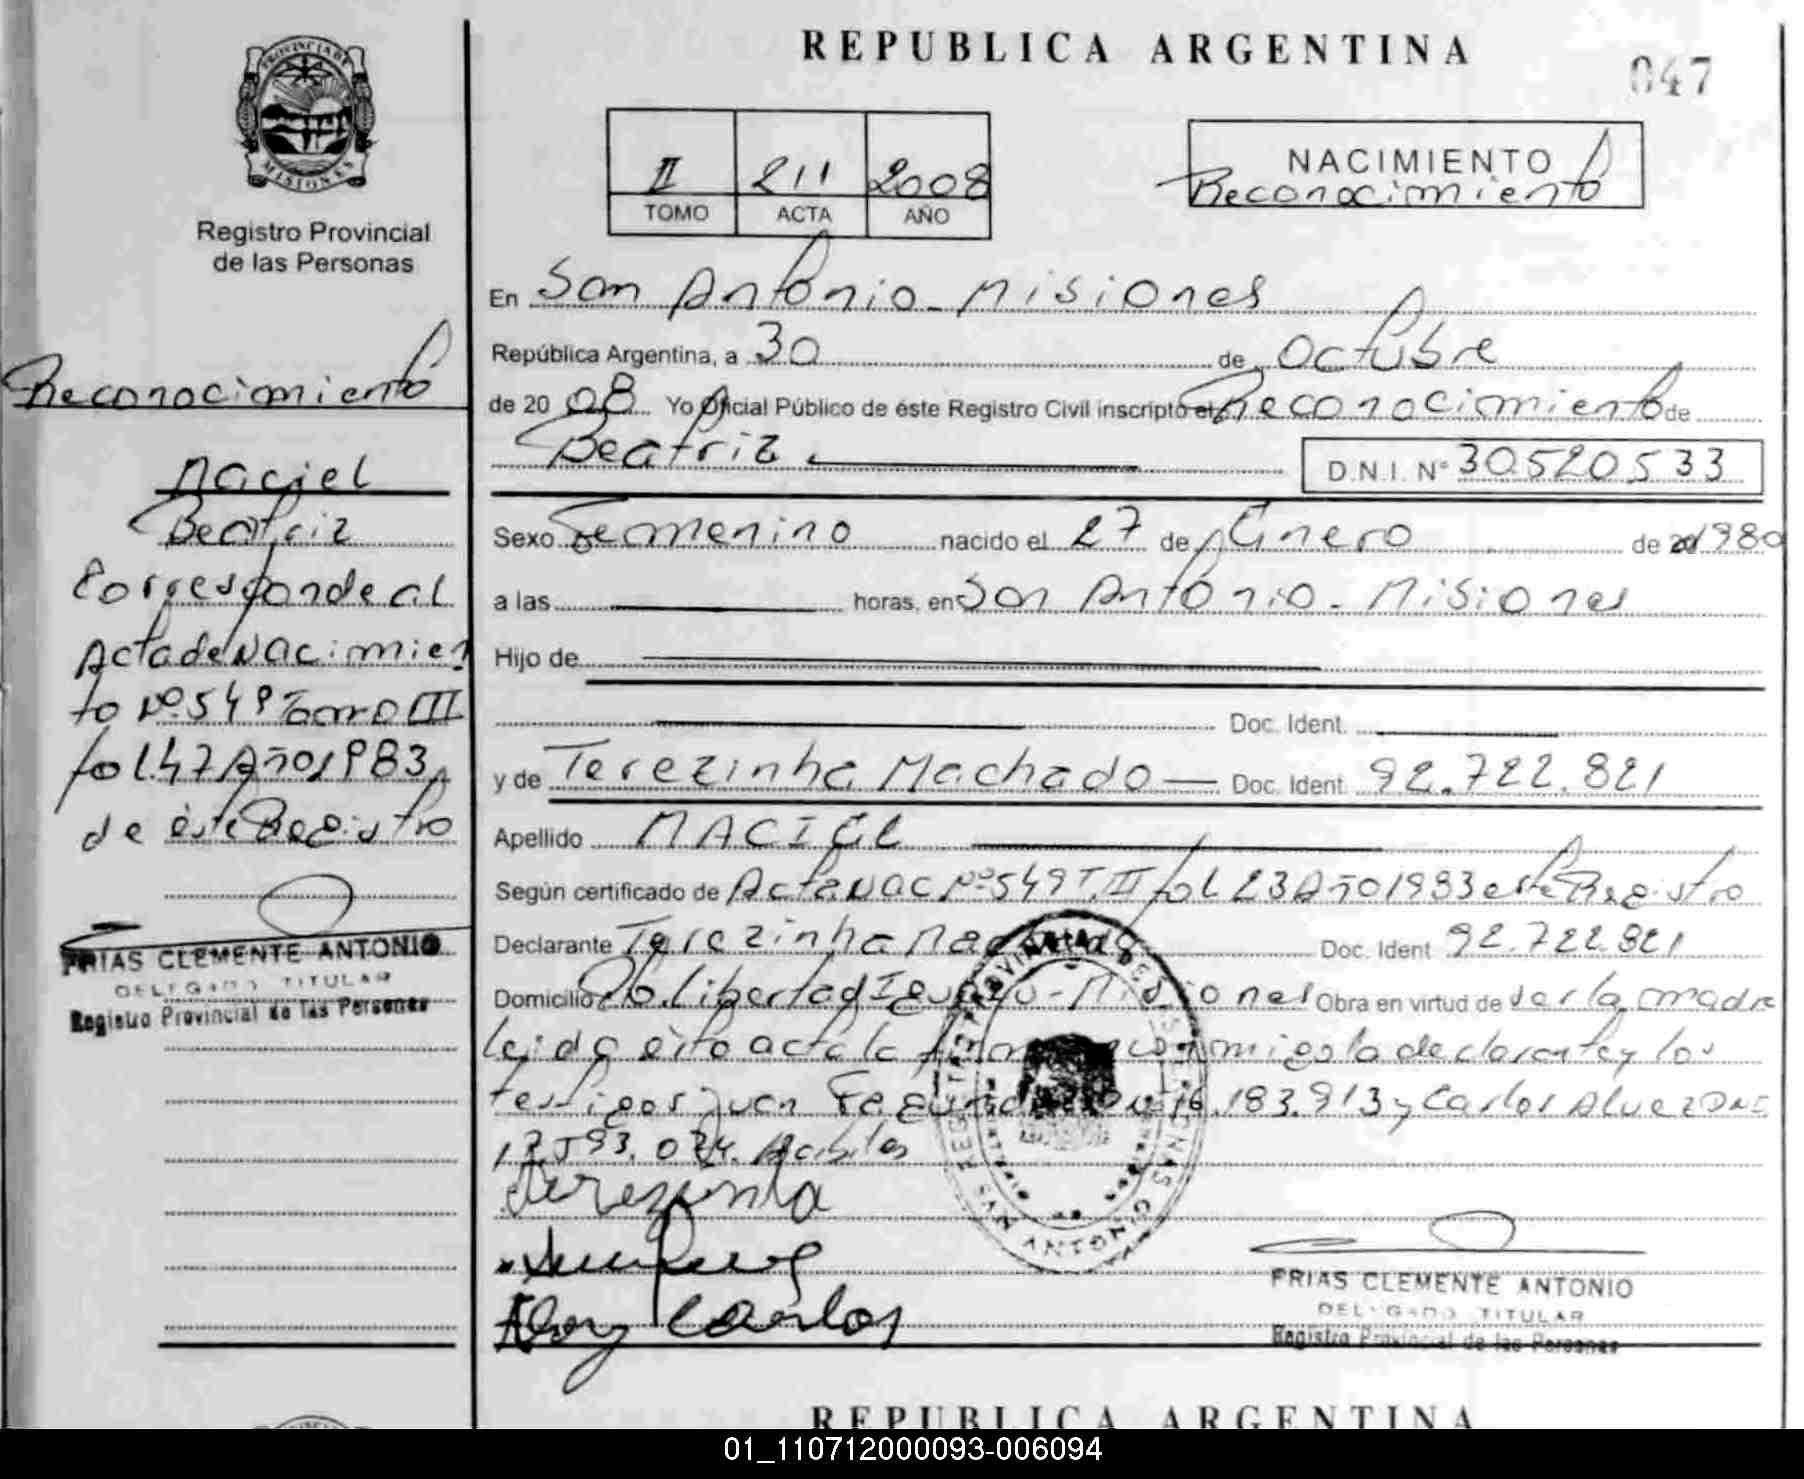 REPUBLICA ARGENTINA
047
PROVINCIA DE
MISIONES
Registro Provincial
de las Personas
II 211 2008
TOMO ACTA AÑO
NACIMIENTO
Reconocimiento
En San Antonio - Misiones
República Argentina, a 30 de Octubre
de 20 08 Yo Oficial Público de éste Registro Civil inscripto el Reconocimiento de
Beatriz
D.N.I. Nº 30.520.533
Sexo Femenino nacido el 27 de Enero de 20 1980
a las horas, en San Antonio - Misiones
Hijo de
Doc. Ident.
y de Terezinha Machado Doc. Ident. 92.722.821
Apellido MACIEL
Según certificado de Acta Nac Nº 549 T. III fol 23 Año 1983 este Registro
Declarante Terezinha Doc. Ident 92.722.821
Domicilio Libertad Iguazu - Misiones Obra en virtud de ser la madre
leida ésta acta la conmigo la declarante y los
testigos Juan 16.183.913 y Carlos Alvez DNI
Terezinha
Carlos
FRIAS CLEMENTE ANTONIO
DELEGADO TITULAR
Registro Provincial de las Personas
Reconocimiento
Maciel
Beatriz
Corresponde al
Acta de Nacimien
to Nº 549 Tomo III
fol. 47 Año 1983
de éste Registro
FRIAS CLEMENTE ANTONIO
DELEGADO TITULAR
Registro Provincial de las Personas
SAN ANTONIO
REPUBLICA ARGENTINA
01_110712000093-006094